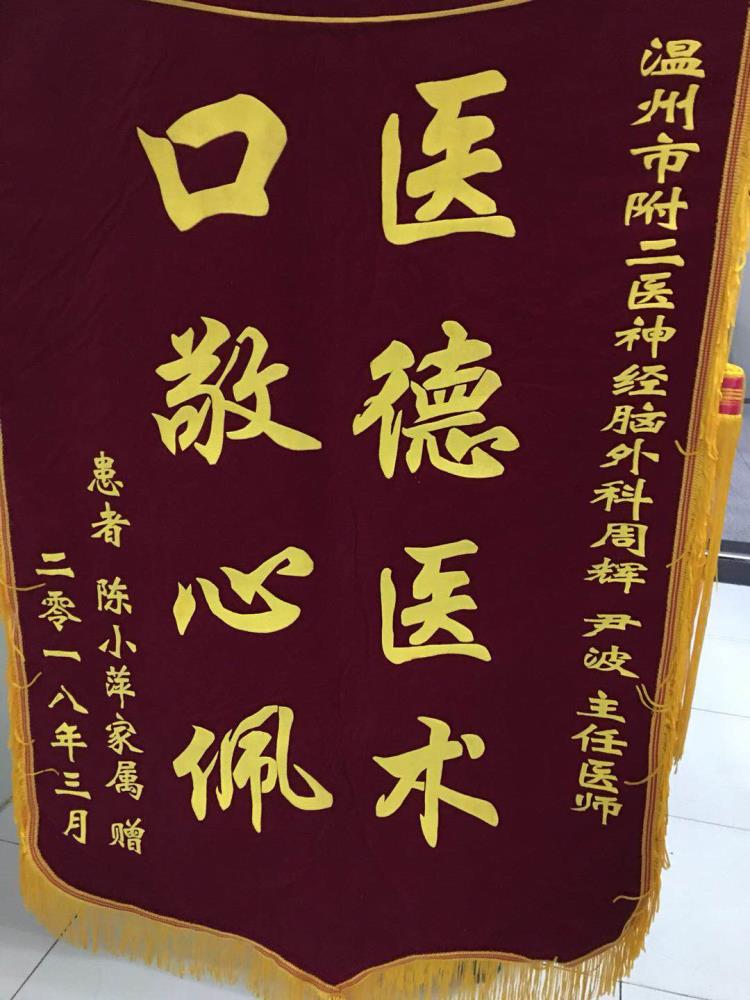 温州市附二医神经脑外科周辉 尹波 主任医师
医德医术
口敬心佩
患者 陈小萍家属 赠
二零一八年三月